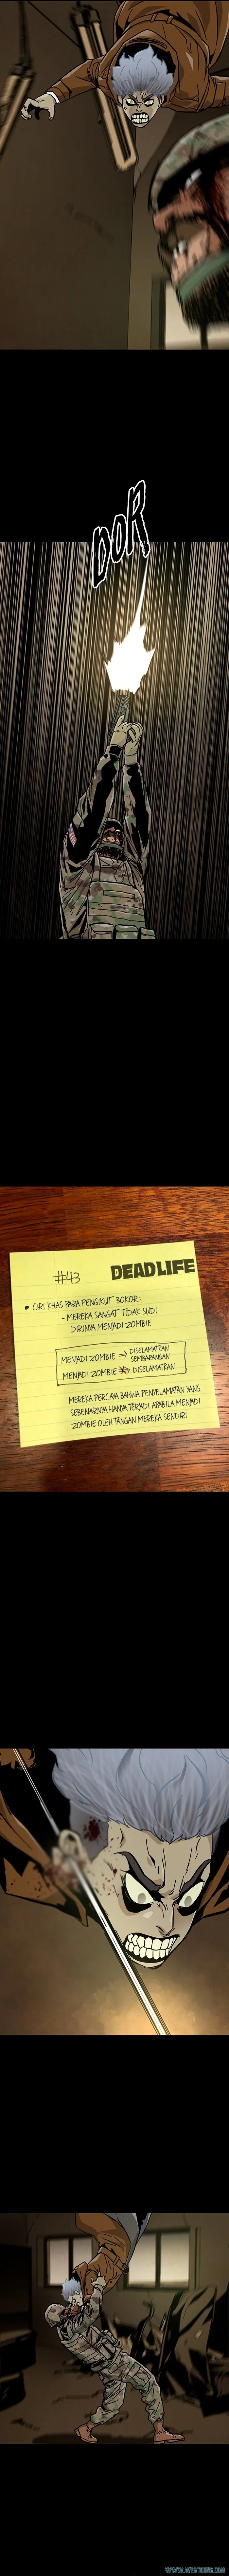 DOR
#43
DEADLIFE
• CIRI KHAS PARA PENGIKUT BOKOR:
- MEREKA SANGAT TIDAK SUDI
DIRINYA MENJADI ZOMBIE
MENJADI ZOMBIE → DISELAMATKAN
SEMBARANGAN
MENJADI ZOMBIE → DISELAMATKAN
MEREKA PERCAYA BAHWA PENYELAMATAN YANG
SEBENARNYA HANYA TERJADI APABILA MENJADI
ZOMBIE OLEH TANGAN MEREKA SENDIRI